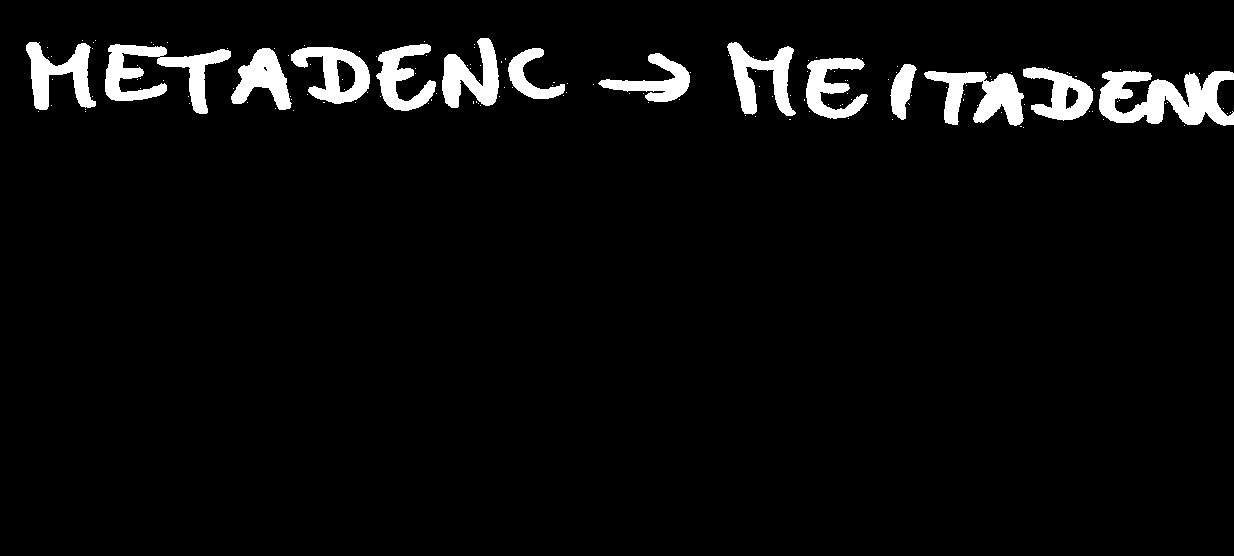 METADENC → MEITADENC